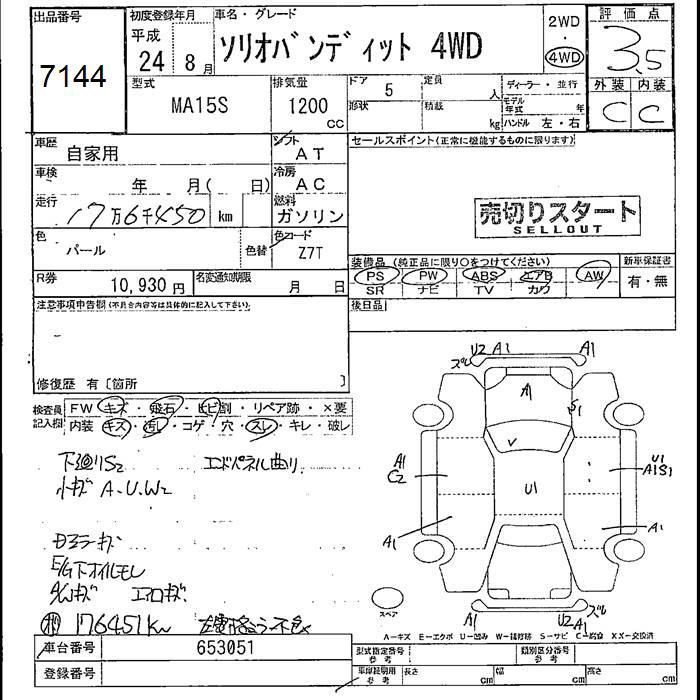 出品番号
7144
初度登録年月
平成
24 8月
車名・グレード
ソリオバンディット 4WD
2WD
・
4WD
評価点
3.5
外装 内装
C C
型式
MA15S
排気量
1200
CC
ドア 5
形状
定員 人
積載 kg
ディーラー・並行
モデル年式 年
ハンドル 左・右
車歴
自家用
シフト
AT
車検
年 月( 日)
冷房
AC
走行
17万6千450 km
燃料
ガソリン
色
パール
色替
色コード
Z7T
セールスポイント(正常に機能するものに限ります)
売切りスタート
SELLOUT
装備品 (純正品に限り○をつけてください)
PS ・ PW ・ ABS ・ エアB ・ AW
SR ナビ TV カワ
新車保証書
有・無
R券
10,930円
名変通知期限
月 日
後日品
注意事項申告欄(不具合内容等は具体的に記入して下さい)
修復歴 有〔箇所 〕
検査員記入欄
FW キズ ・ 飛石 ・ ヒビ割 ・ リペア跡 ・ ×要
内装 キズ ・ 汚れ ・ コゲ ・ 穴 ・ スレ ・ キレ ・ 破レ
下廻りS2 エンドパネル曲り
小キズ A.U.W2
E/G下オイルモレ
A/Wキズ エアロキズ
176451km
ズレ U2 A1 A1
A1
S1
V
U1
A1
C2
U1
A1S1
A1
A1
A1 U2 A1 ズレ
スペア
A-キズ E-エクボ U-凹み W-補修跡 S-サビ C-腐食 XX-交換済
車台番号
653051
登録番号
型式指定番号
参考
類別区分番号
参考
車庫証明用
参考
長さ cm
幅 cm
高さ cm